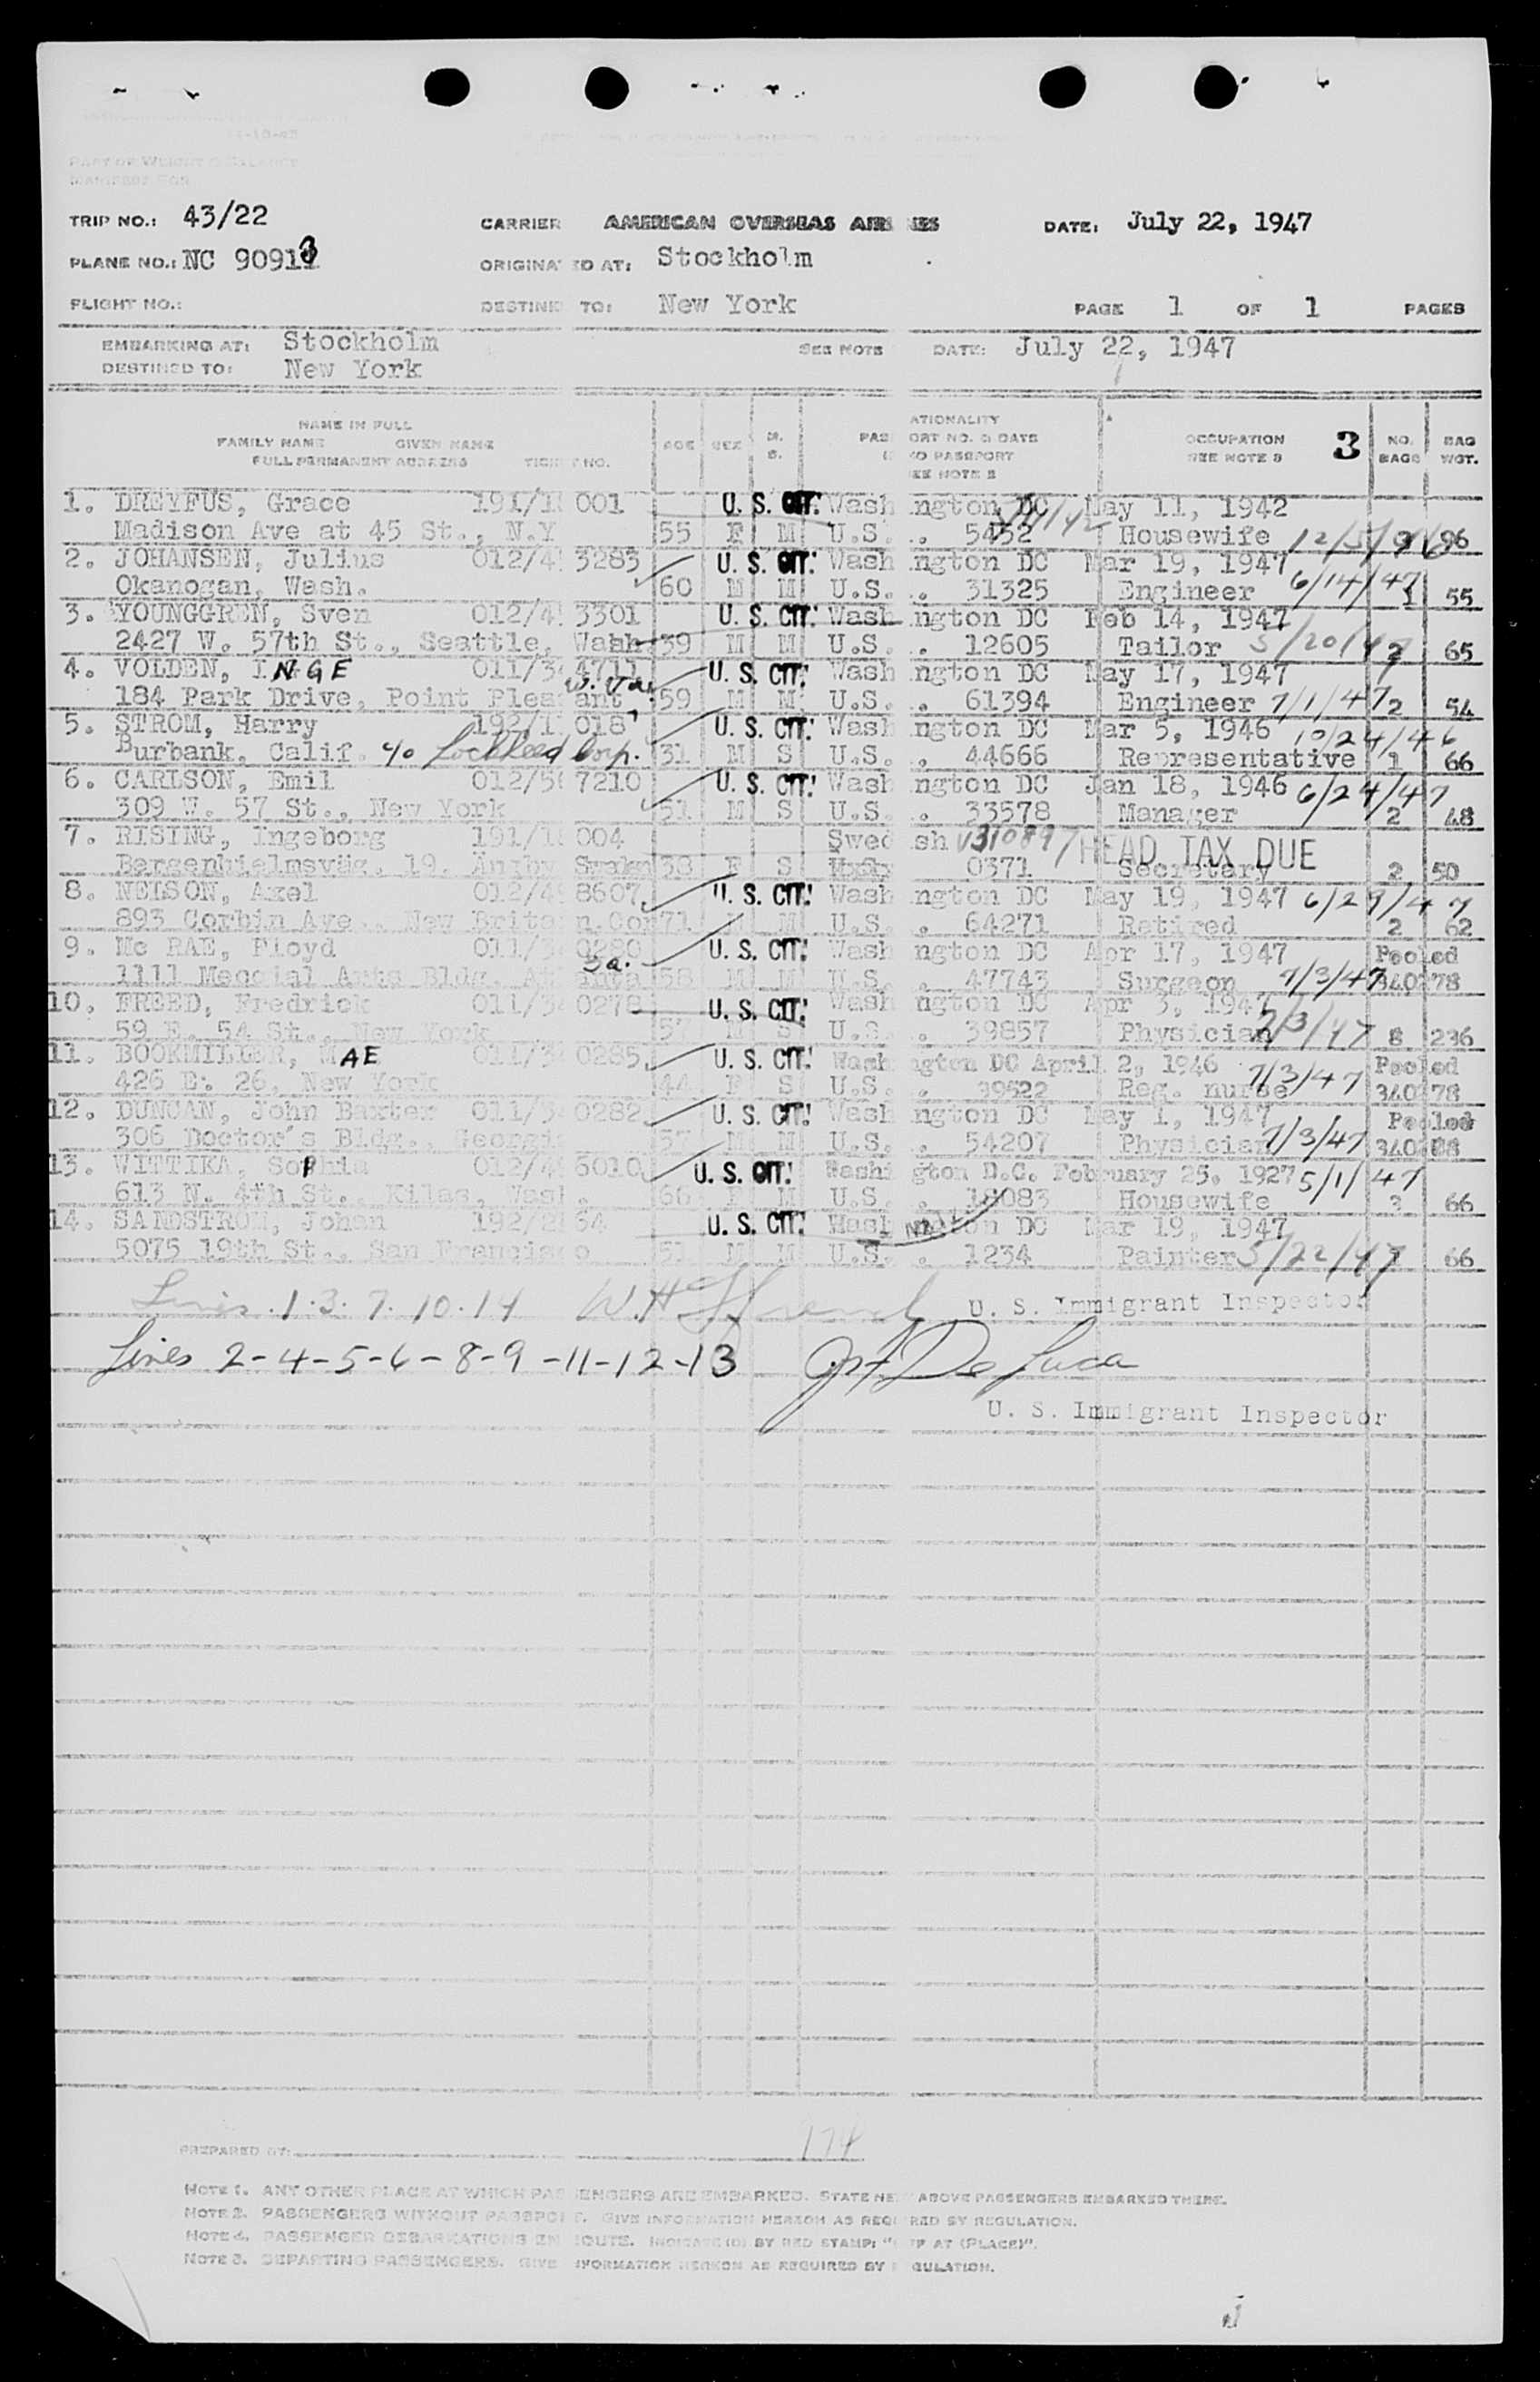 PART OF WEIGHT & BALANCE
MANIFEST FOR
TRIP NO.: 43/22 CARRIER AMERICAN OVERSEAS AIR NES DATE: July 22, 1947
PLANE NO.: NC 90913 ORIGINA ED AT: Stockholm
FLIGHT NO.: DESTINE TO: New York PAGE 1 OF 1 PAGES
EMBARKING AT: Stockholm SEE NOTE DATE: July 22, 1947
DESTINED TO: New York
NAME IN FULL ATIONALITY
FAMILY NAME GIVEN NAME AGE SEX M. PAS ORT NO. & DATE OCCUPATION 3 NO. BAG
FULL PERMANENT ADDRESS TICK T NO. S. O PASSPORT SEE NOTE 3 BAGS WGT.
EE NOTE 2
1. DREYFUS, Grace 191/1 001 U. S. CIT. Wash ngton DC May 11, 1942
Madison Ave at 45 St., N.Y 55 F M U.S. . 5452 Housewife 96
2. JOHANSEN, Julius 012/4 3283 U. S. CIT. Wash ngton DC Mar 19, 1947
Okanogan, Wash. 60 M M U.S. . 31325 Engineer 6/14/47 1 55
3. YOUNGGREN, Sven 012/4 3301 U. S. CIT. Wash ngton DC Feb 14, 1947
2427 W. 57th St., Seattle, Wash 39 M M U.S. . 12605 Tailor 5/20/47 2 65
4. VOLDEN, INGE 011/3 4711 U. S. CIT. Wash ngton DC May 17, 1947
184 Park Drive, Point Pleas ant W. Va. 59 M M U.S. . 61394 Engineer 7/1/47 2 54
5. STROM, Harry 192/1 018 U. S. CIT. Wash ngton DC Mar 5, 1946
Burbank, Calif. c/o Lockheed Corp. 31 M S U.S. . 44666 Representative 10/24/46 1 66
6. CARLSON, Emil 012/5 7210 U. S. CIT. Wash ngton DC Jan 18, 1946
309 W. 57 St., New York 51 M S U.S. . 33578 Manager 6/24/47 2 48
7. RISING, Ingeborg 191/1 004 Swed sh V310897 HEAD TAX DUE
Bergenhielmsväg. 19. Ängby 38 F S 0371 Secretary 2 50
8. NELSON, Axel 012/4 8607 U. S. CIT. Wash ngton DC May 19, 1947
893 Corbin Ave., New Brita n.Con 71 M U.S. . 64271 Retired 6/27/47 2 62
9. Mc RAE, Floyd 011/3 0280 U. S. CIT. Wash ngton DC Apr 17, 1947 Pooled
1111 Medcial Arts Bldg. At anta Ga. 58 M M U.S. . 47743 Surgeon 7/3/47 340278
10. FREED, Fredrick 011/3 0278 U. S. CIT. Wash ngton DC Apr 3, 1947
59 E. 54 St., New York 57 M S U.S. . 39857 Physician 7/3/47 8 236
11. BOOKMILLER, MAE 011/3 0285 U. S. CIT. Wash ngton DC April 2, 1946 Pooled
426 E. 26, New York 44 F S U.S. . 39522 Reg. nurse 7/3/47 340278
12. DUNCAN, John Baxter 011/3 0282 U. S. CIT. Wash ngton DC May 1, 1947 Pooled
306 Doctor's Bldg., Georgia 57 M M U.S. . 54207 Physician 7/3/47
13. WITTIKA, Sophia 012/4 6010 U. S. CIT. Washi gton D.C. February 25, 1927
613 N. 4th St., Kilas, Wash . 66 F M U.S. . 18083 Housewife 5/1/47 3 66
14. SANDSTROM, Johan 192/2 34 U. S. CIT. Wash ngton DC Mar 19, 1947
5075 19th St., San Francis o 51 M M U.S. . 1234 Painter 5/22/47 66
Lines 1. 3. 7. 10. 14 W. H. French U. S. Immigrant Inspector
Lines 2-4-5-6-8-9-11-12-13 De Luca
U. S. Immigrant Inspector
PREPARED BY: 174
NOTE 1. ANY OTHER PLACE AT WHICH PAS ENGERS ARE EMBARKED. STATE HE ABOVE PASSENGERS EMBARKED THERE.
NOTE 2. PASSENGERS WITHOUT PASSPO S. GIVE INFORMATION HEREON AS REQ RED BY REGULATION.
NOTE 4. PASSENGER DEBARKATIONS EN OUTE. INDICATE (D) BY RED STAMP: " FF AT (PLACE)".
NOTE 3. DEPARTING PASSENGERS. GIVE NFORMATION HEREON AS REQUIRED BY GULATION.